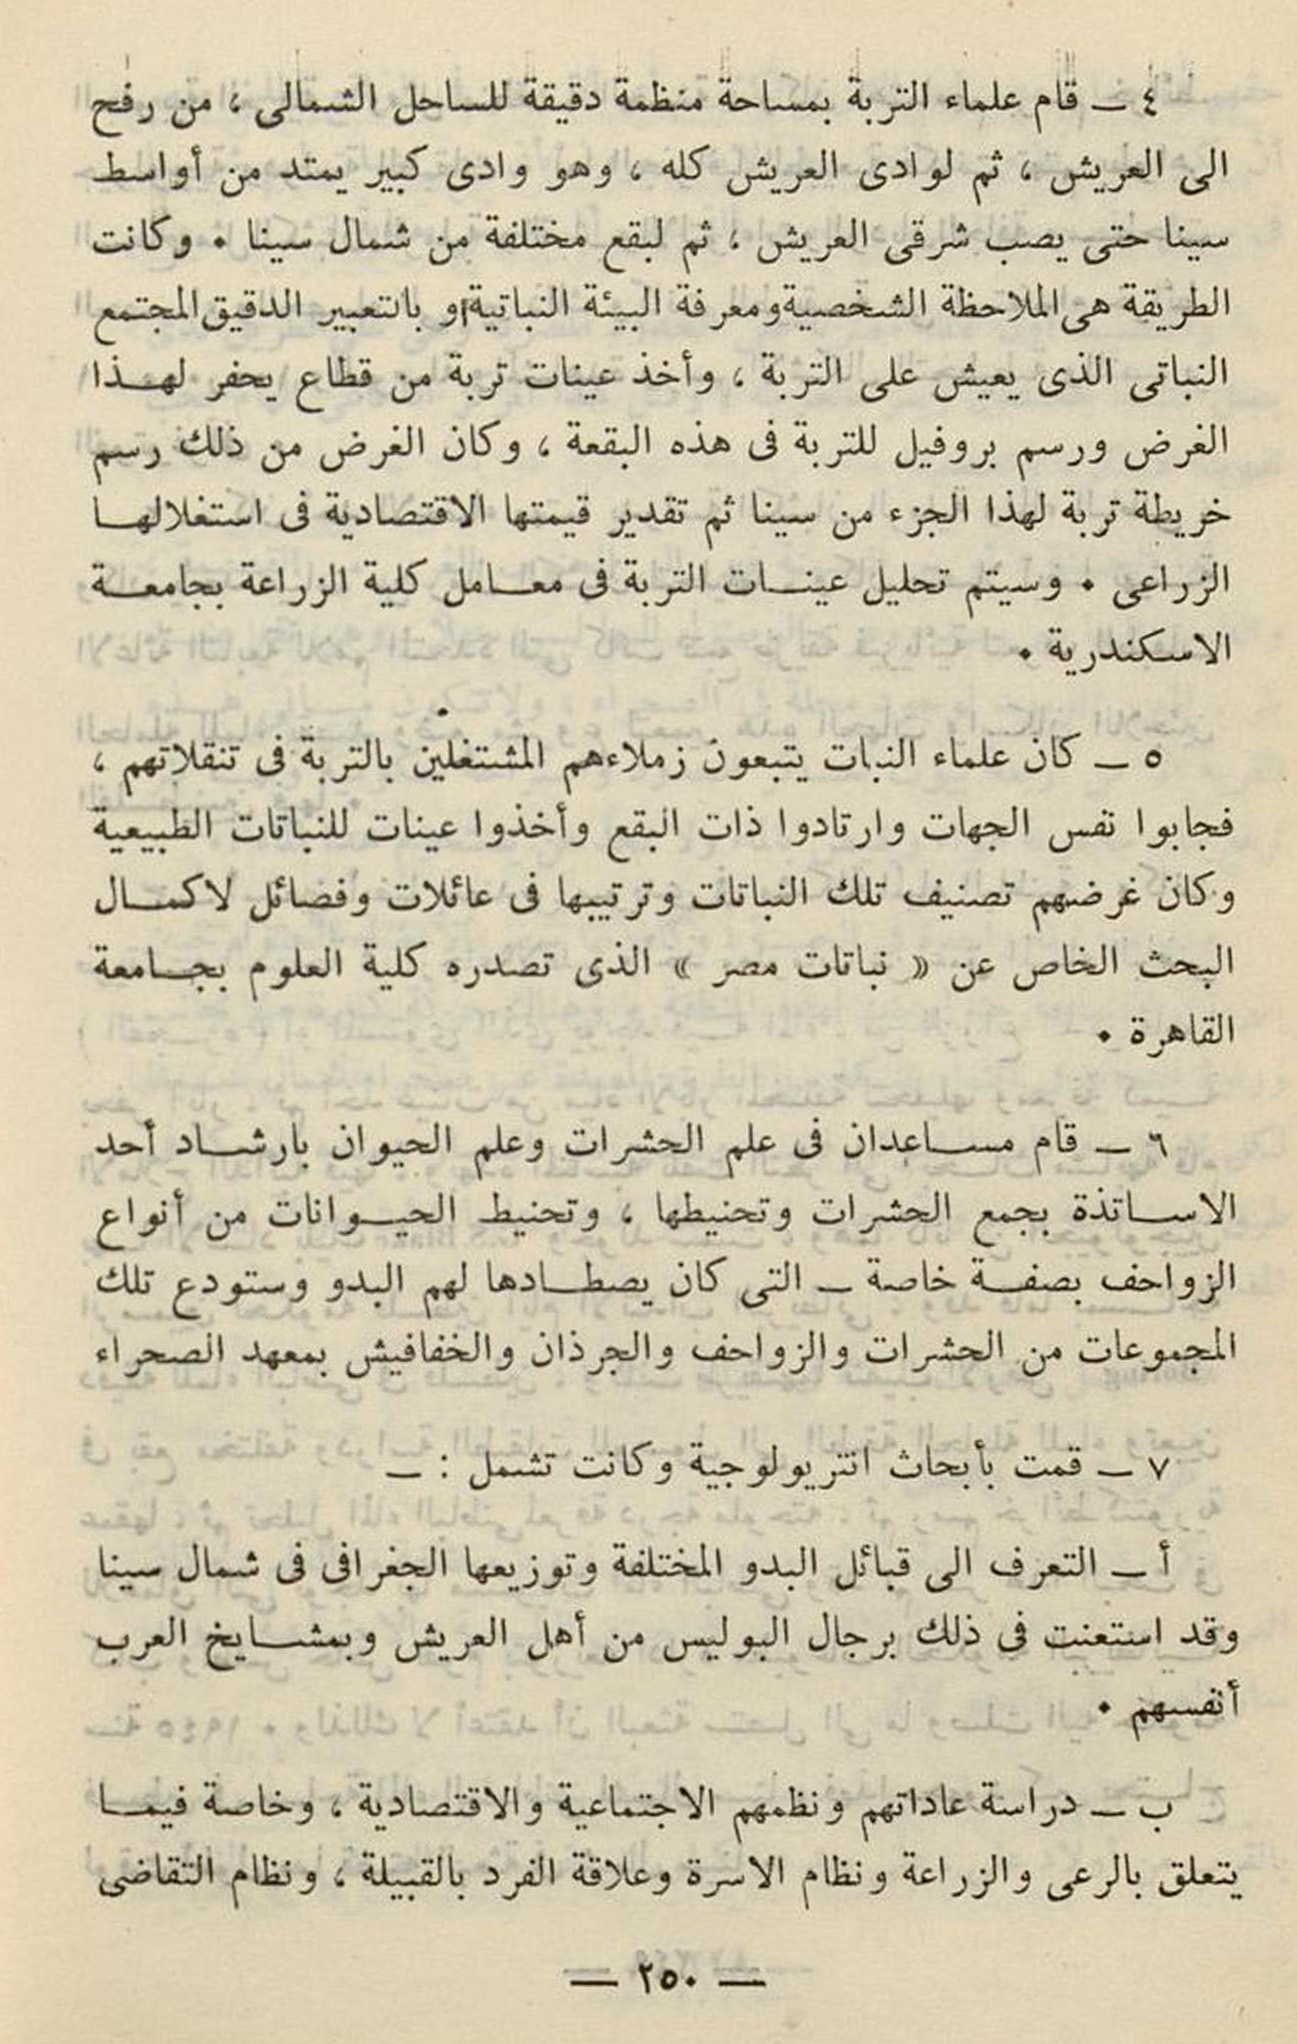 ٤ — قام علماء التربة بمساحة منظمة دقيقة للساحل الشمالى ، من رفح
الى العريش ، ثم لوادى العريش كله ، وهو وادى كبير يمتد من أواسط
سينا حتى يصب شرقى العريش ، ثم لبقع مختلفة من شمال سينا . وكانت
الطريقة هى الملاحظة الشخصية ومعرفة البيئة النباتية او بالتعبير الدقيق المجتمع
النباتى الذى يعيش على التربة ، وأخذ عينات تربة من قطاع يحفر لهذا
الغرض ورسم بروفيل للتربة فى هذه البقعة ، وكان الغرض من ذلك رسم
خريطة تربة لهذا الجزء من سينا ثم تقدير قيمتها الاقتصادية فى استغلالها
الزراعى . وسيتم تحليل عينات التربة فى معامل كلية الزراعة بجامعة
الاسكندرية .
٥ — كان علماء النبات يتبعون زملاءهم المشتغلين بالتربة فى تنقلاتهم ،
فجابوا نفس الجهات وارتادوا ذات البقع وأخذوا عينات للنباتات الطبيعية
وكان غرضهم تصنيف تلك النباتات وترتيبها فى عائلات وفصائل لاكمال
البحث الخاص عن « نباتات مصر » الذى تصدره كلية العلوم بجامعة
القاهرة .
٦ — قام مساعدان فى علم الحشرات وعلم الحيوان بارشاد أحد
الاساتذة بجمع الحشرات وتحنيطها ، وتحنيط الحيوانات من أنواع
الزواحف بصفة خاصة — التى كان يصطادها لهم البدو وستودع تلك
المجموعات من الحشرات والزواحف والجرذان والخفافيش بمعهد الصحراء
٧ — قمت بأبحاث انتريولوجية وكانت تشمل : —
أ — التعرف الى قبائل البدو المختلفة وتوزيعها الجغرافى فى شمال سينا
وقد استعنت فى ذلك برجال البوليس من أهل العريش وبمشايخ العرب
أنفسهم .
ب — دراسة عاداتهم ونظمهم الاجتماعية والاقتصادية ، وخاصة فيما
يتعلق بالرعى والزراعة ونظام الاسرة وعلاقة الفرد بالقبيلة ، ونظام التقاضى
— ٢٥٠ —